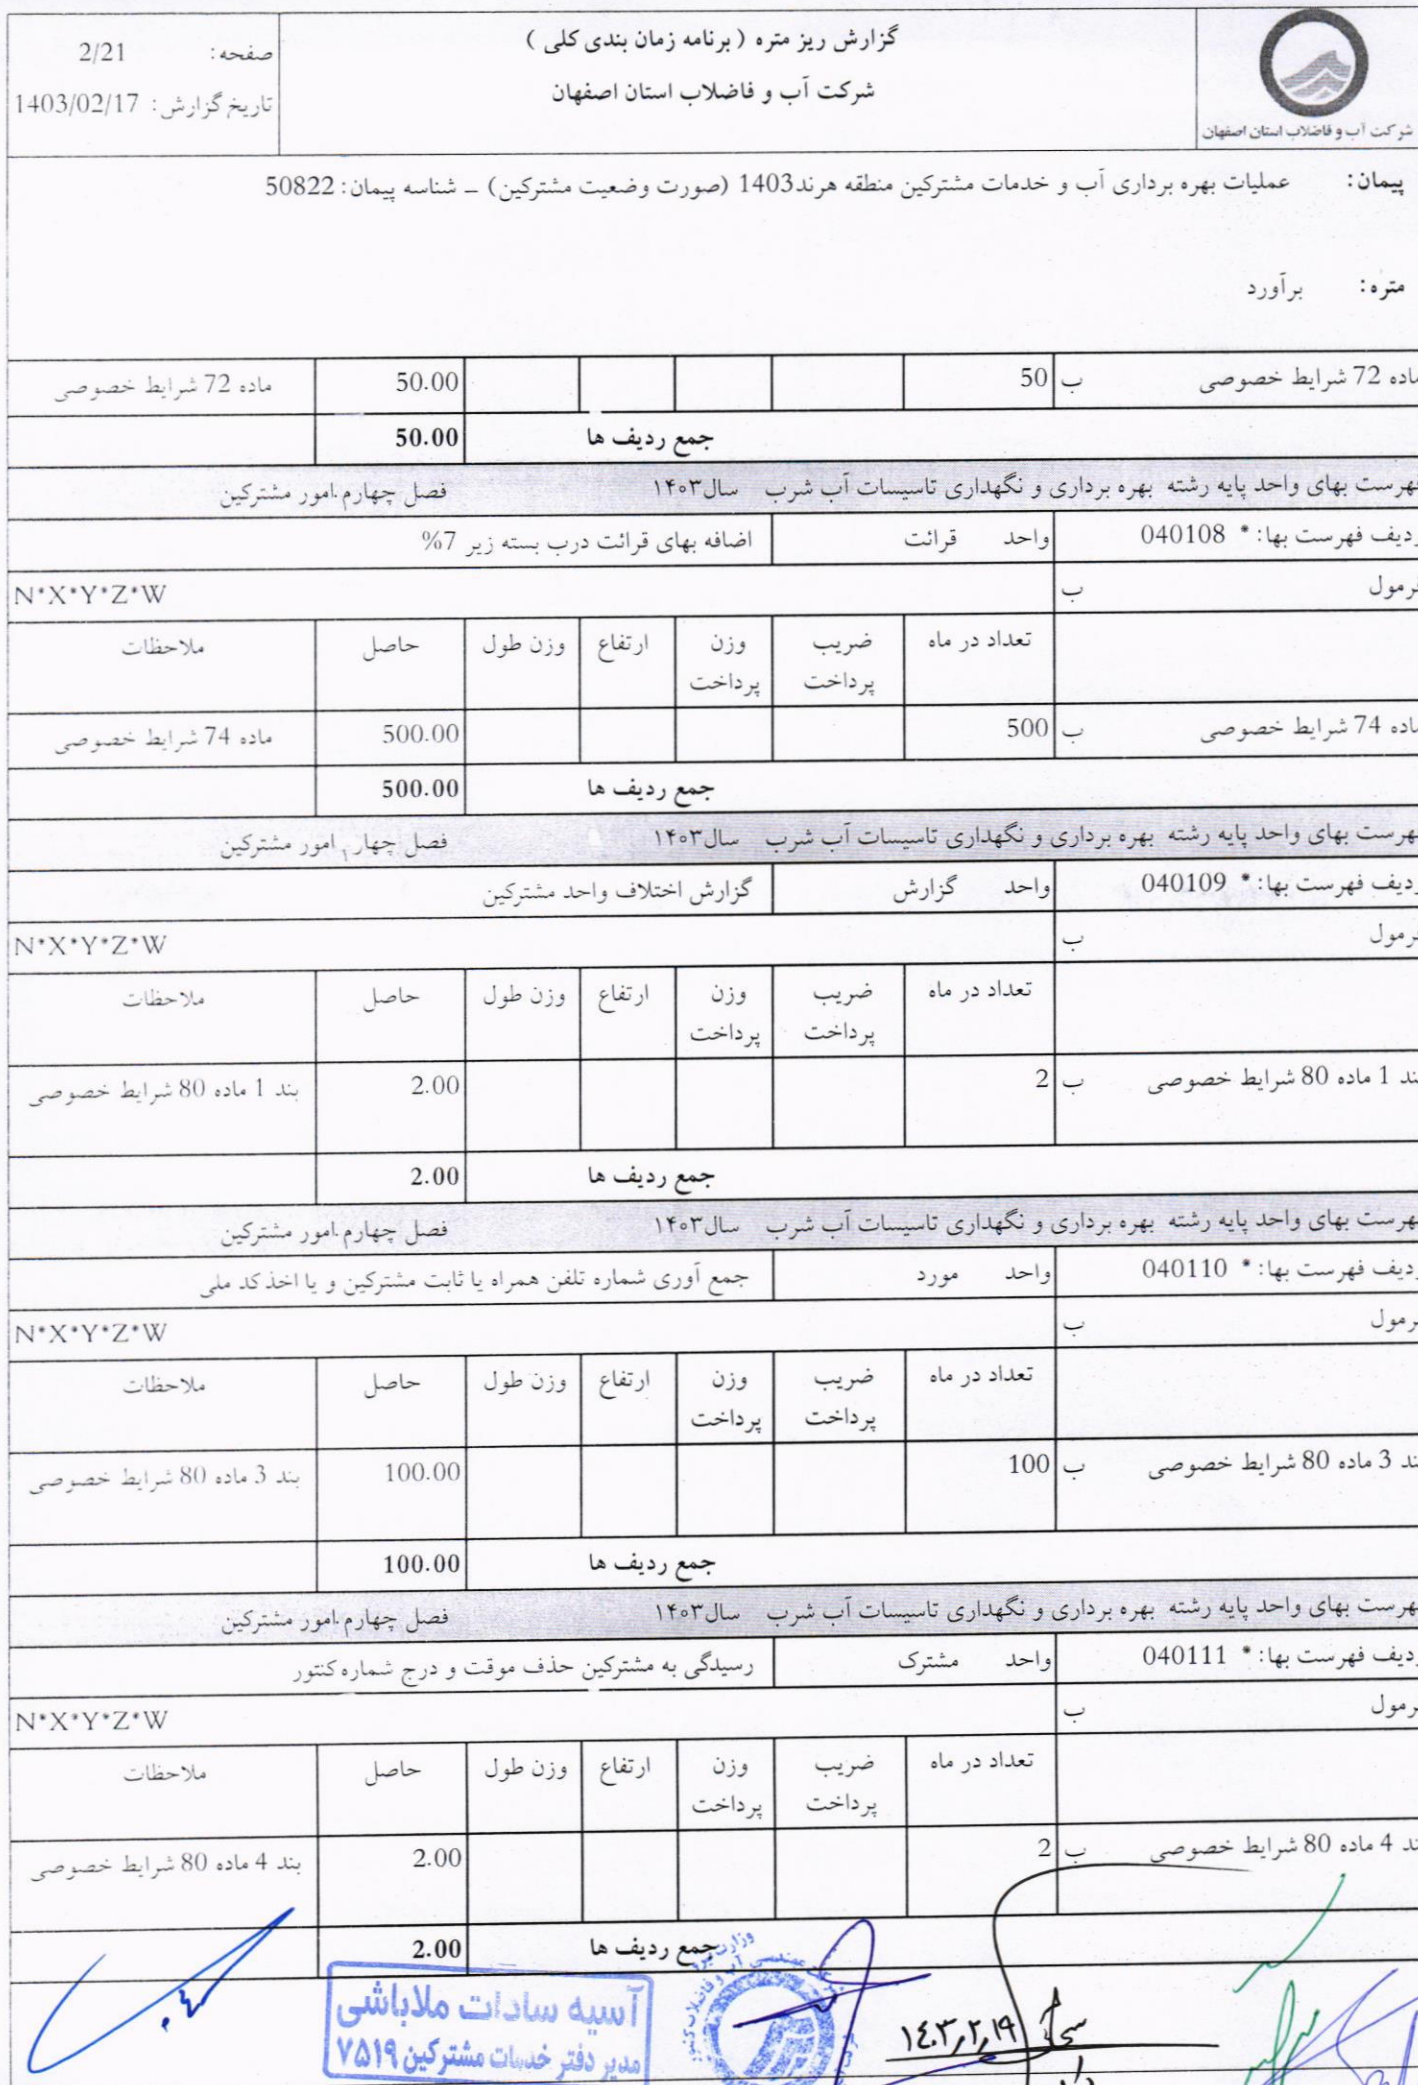 شرکت آب و فاضلاب استان اصفهان
گزارش ریز متره ( برنامه زمان بندی کلی )
شرکت آب و فاضلاب استان اصفهان
صفحه: 2/21
تاریخ گزارش: 1403/02/17
پیمان: عملیات بهره برداری آب و خدمات مشترکین منطقه هرند1403 (صورت وضعیت مشترکین) – شناسه پیمان: 50822
متره: برآورد
ماده 72 شرایط خصوصی ب 50 50.00 ماده 72 شرایط خصوصی
جمع ردیف ها 50.00
فهرست بهای واحد پایه رشته بهره برداری و نگهداری تاسیسات آب شرب سال۱۴۰۳ فصل چهارم.امور مشترکین
ردیف فهرست بها: * 040108 واحد قرائت اضافه بهای قرائت درب بسته زیر 7%
فرمول ب N*X*Y*Z*W
تعداد در ماه ضریب پرداخت وزن پرداخت ارتفاع وزن طول حاصل ملاحظات
ماده 74 شرایط خصوصی ب 500 500.00 ماده 74 شرایط خصوصی
جمع ردیف ها 500.00
فهرست بهای واحد پایه رشته بهره برداری و نگهداری تاسیسات آب شرب سال۱۴۰۳ فصل چهارم.امور مشترکین
ردیف فهرست بها: * 040109 واحد گزارش گزارش اختلاف واحد مشترکین
فرمول ب N*X*Y*Z*W
تعداد در ماه ضریب پرداخت وزن پرداخت ارتفاع وزن طول حاصل ملاحظات
بند 1 ماده 80 شرایط خصوصی ب 2 2.00 بند 1 ماده 80 شرایط خصوصی
جمع ردیف ها 2.00
فهرست بهای واحد پایه رشته بهره برداری و نگهداری تاسیسات آب شرب سال۱۴۰۳ فصل چهارم.امور مشترکین
ردیف فهرست بها: * 040110 واحد مورد جمع آوری شماره تلفن همراه یا ثابت مشترکین و یا اخذ کد ملی
فرمول ب N*X*Y*Z*W
تعداد در ماه ضریب پرداخت وزن پرداخت ارتفاع وزن طول حاصل ملاحظات
بند 3 ماده 80 شرایط خصوصی ب 100 100.00 بند 3 ماده 80 شرایط خصوصی
جمع ردیف ها 100.00
فهرست بهای واحد پایه رشته بهره برداری و نگهداری تاسیسات آب شرب سال۱۴۰۳ فصل چهارم.امور مشترکین
ردیف فهرست بها: * 040111 واحد مشترک رسیدگی به مشترکین حذف موقت و درج شماره کنتور
فرمول ب N*X*Y*Z*W
تعداد در ماه ضریب پرداخت وزن پرداخت ارتفاع وزن طول حاصل ملاحظات
بند 4 ماده 80 شرایط خصوصی ب 2 2.00 بند 4 ماده 80 شرایط خصوصی
جمع ردیف ها 2.00
آسیه سادات ملاباشی
مدیر دفتر خدمات مشترکین ۷۵۱۹
۱۴۰۳,۲,۱۹